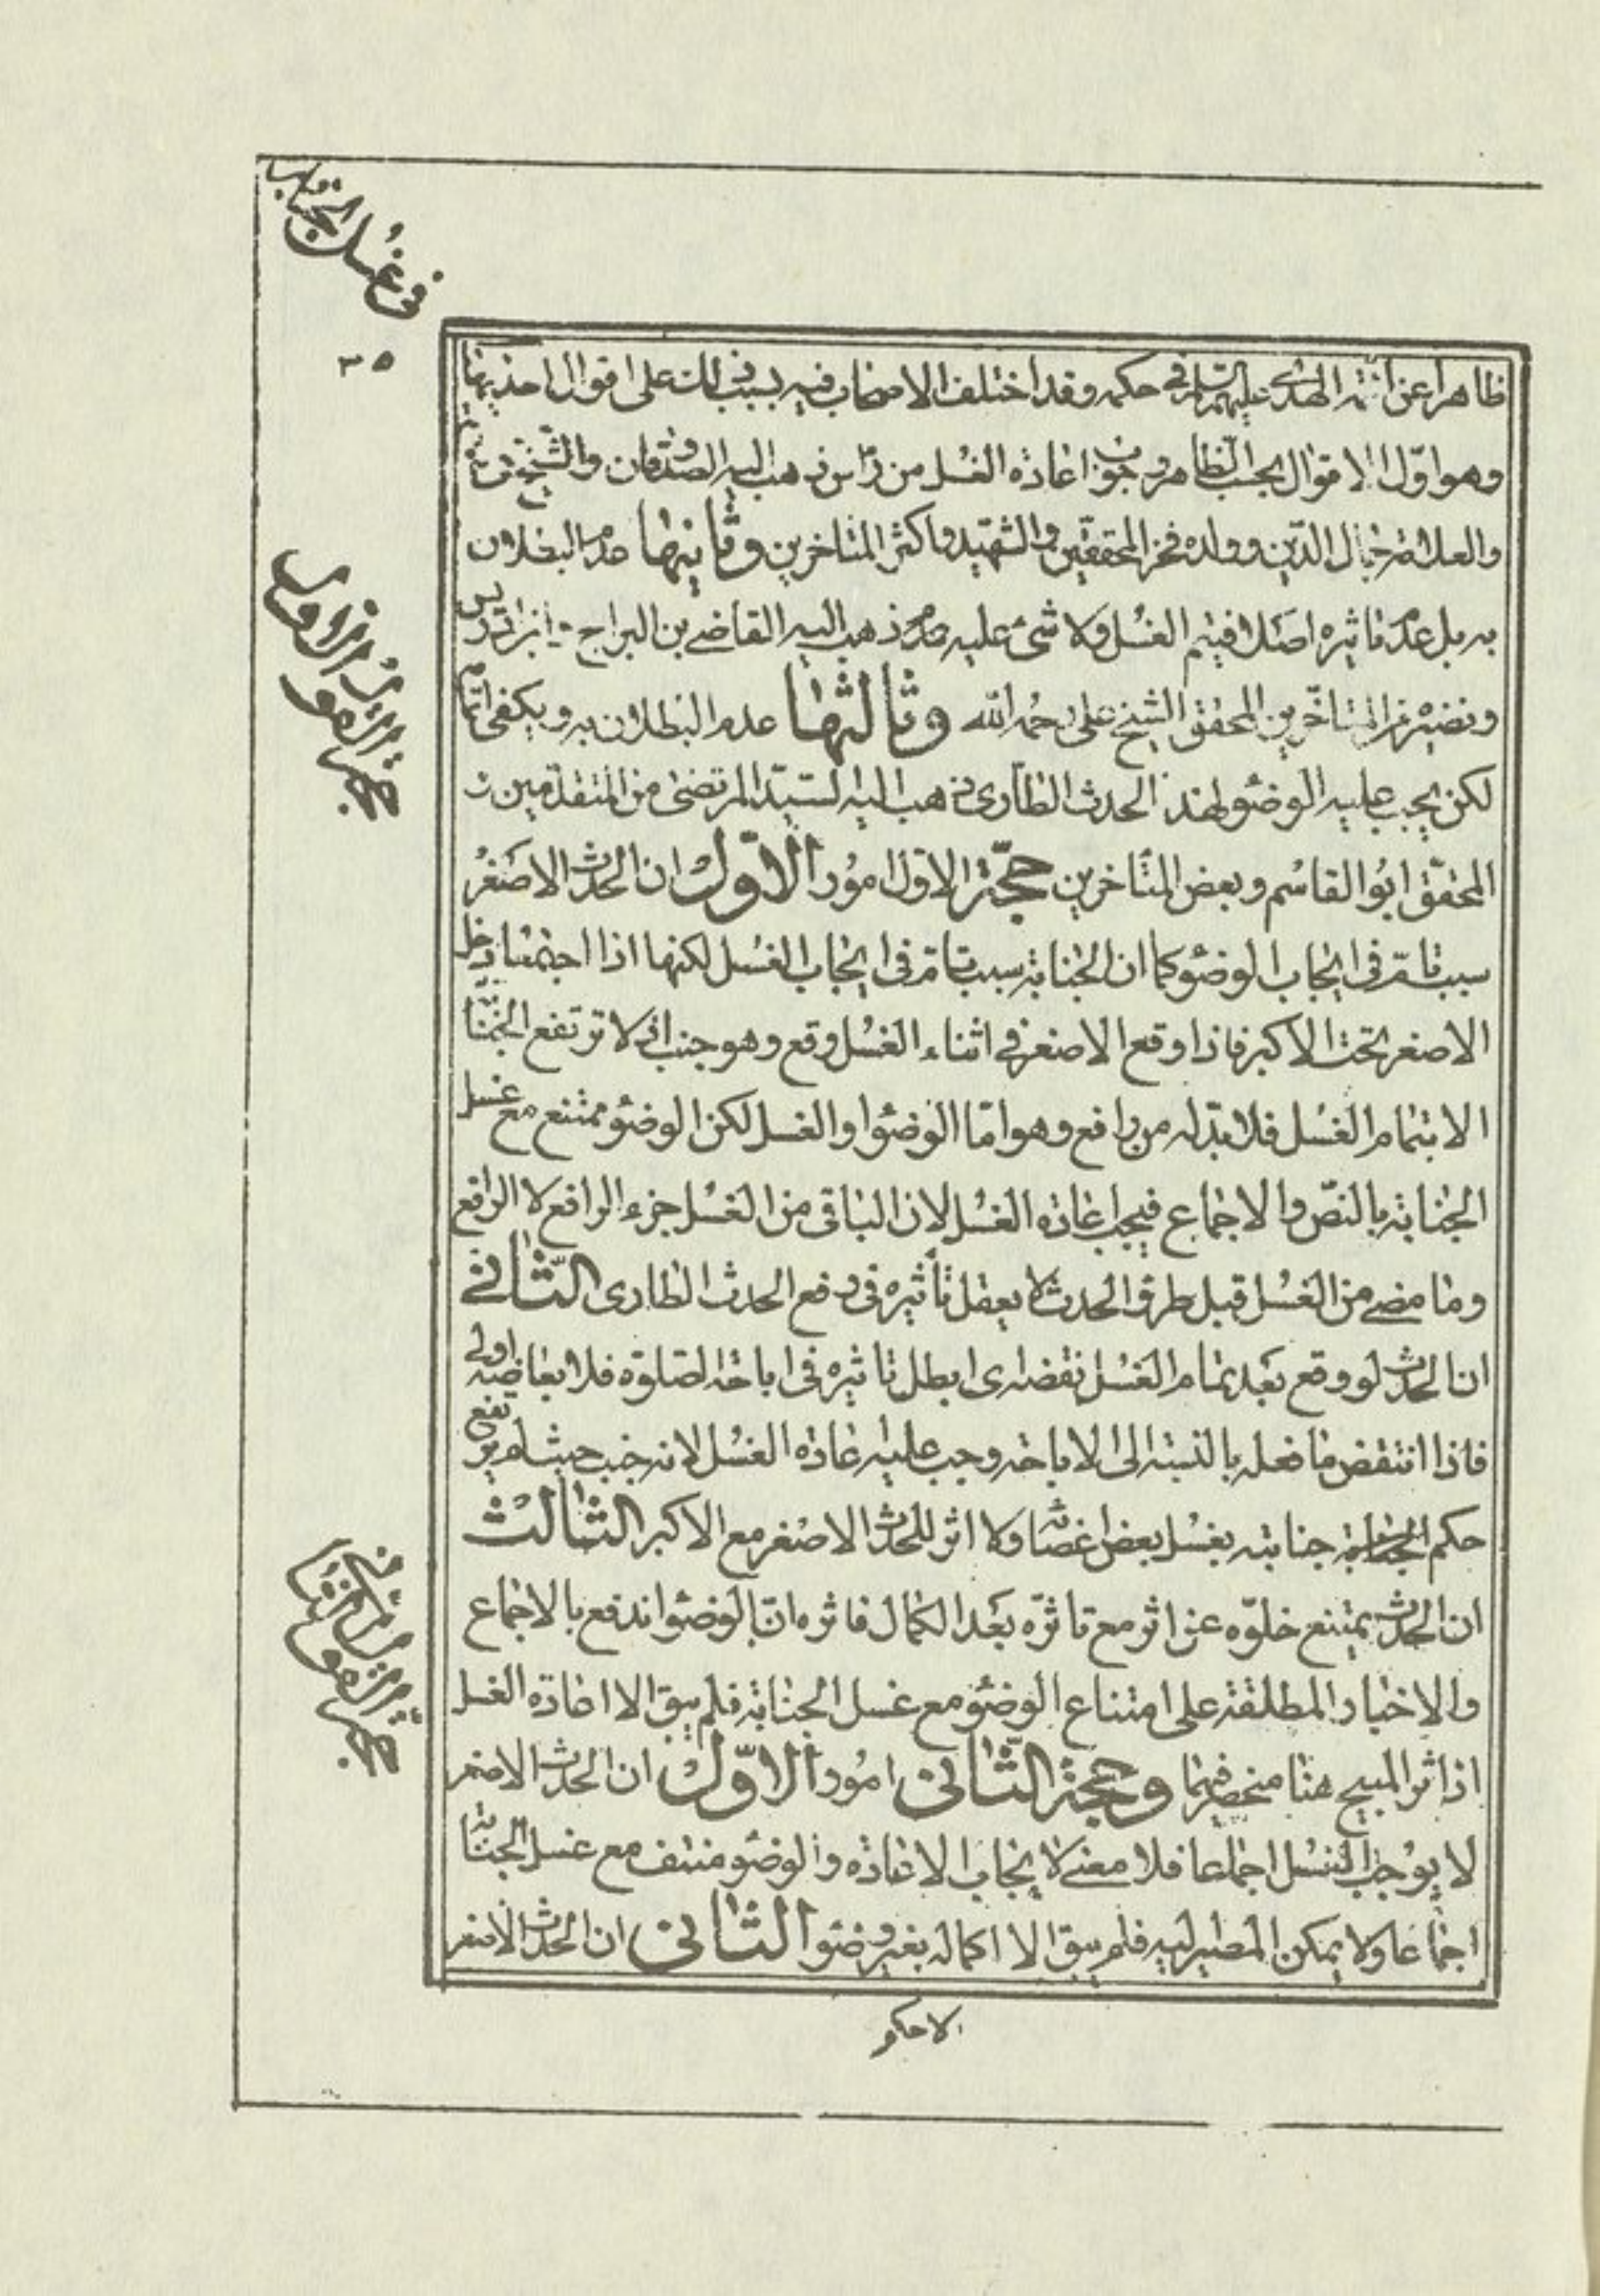 في غسل الجنابة
٣٥
ظاهرا عن ائمة الهدى عليهم السلام في حكمه وقد اختلف الاصحاب فيه بسبب ذلك على اقوال احديها
وهو اول الاقوال بحسب الظاهر وجوب اعادة الغسل من راس ذهب اليه الصدوقان والشيخ
والعلامة جمال الدين وولده فخر المحققين والشهيد واكثر المتاخرين وثانيها عدم البطلان
به بل عدم تاثيره اصلا فيتم الغسل ولا شئ عليه ذهب اليه القاضي بن البراج ابن ادريس
ونصره من المتاخرين المحقق الشيخ علي رحمه الله وثالثها عدم البطلان به ويكفي اتمام
لكن يجب عليه الوضوء لهذا الحدث الطارى ذهب اليه السيد المرتضى من المتقدمين
المحقق ابو القاسم وبعض المتاخرين حجة الاول امور الاول ان الحدث الاصغر
سبب تام في ايجاب الوضوء كما ان الجنابة سبب تام في ايجاب الغسل لكنها اذا اجتمعا دخل
الاصغر تحت الاكبر فاذا وقع الاصغر في اثناء الغسل وقع وهو جنب اذ لا ترتفع الجنابة
الا بتمام الغسل فلا بد له من رافع وهو اما الوضوء او الغسل لكن الوضوء ممتنع مع غسل
الجنابة بالنص والاجماع فيجب اعادة الغسل لان الباقى من الغسل جزء الرافع لا الرافع
وما مضى من الغسل قبل طرو الحدث لا يعقل تأثيره في رفع الحدث الطارى الثاني
ان الحدث لو وقع بعد تمام الغسل نقضه اى ابطل تاثيره في اباحة الصلوة فلابعاضه اولى
فاذا انتقض ما فعله بالنسبة الى الاباحة وجب عليه اعادة الغسل لانه جنب حيث لم يرتفع
حكم جنابته بغسل بعض اعضائه ولا اثر للحدث الاصغر مع الاكبر الثالث
ان الحدث يمتنع خلوه عن اثر مع تاثره بعد الكمال فاثره ان الوضوء اندفع بالاجماع
والاخبار المطلقة على امتناع الوضوء مع غسل الجنابة فلم يبق الا اعادة الغسل
اذ اثر المبيح هنا منحصر فيهما وحجة الثاني امور الاول ان الحدث الاصغر
لا يوجب الغسل اجماعا فلا معنى لايجاب الاعادة والوضوء منتف مع غسل الجنابة
اجماعا ولا يمكن المصير اليه فلم يبق الا اكماله بغير وضوء الثاني ان الحدث الاصغر
لا حكم